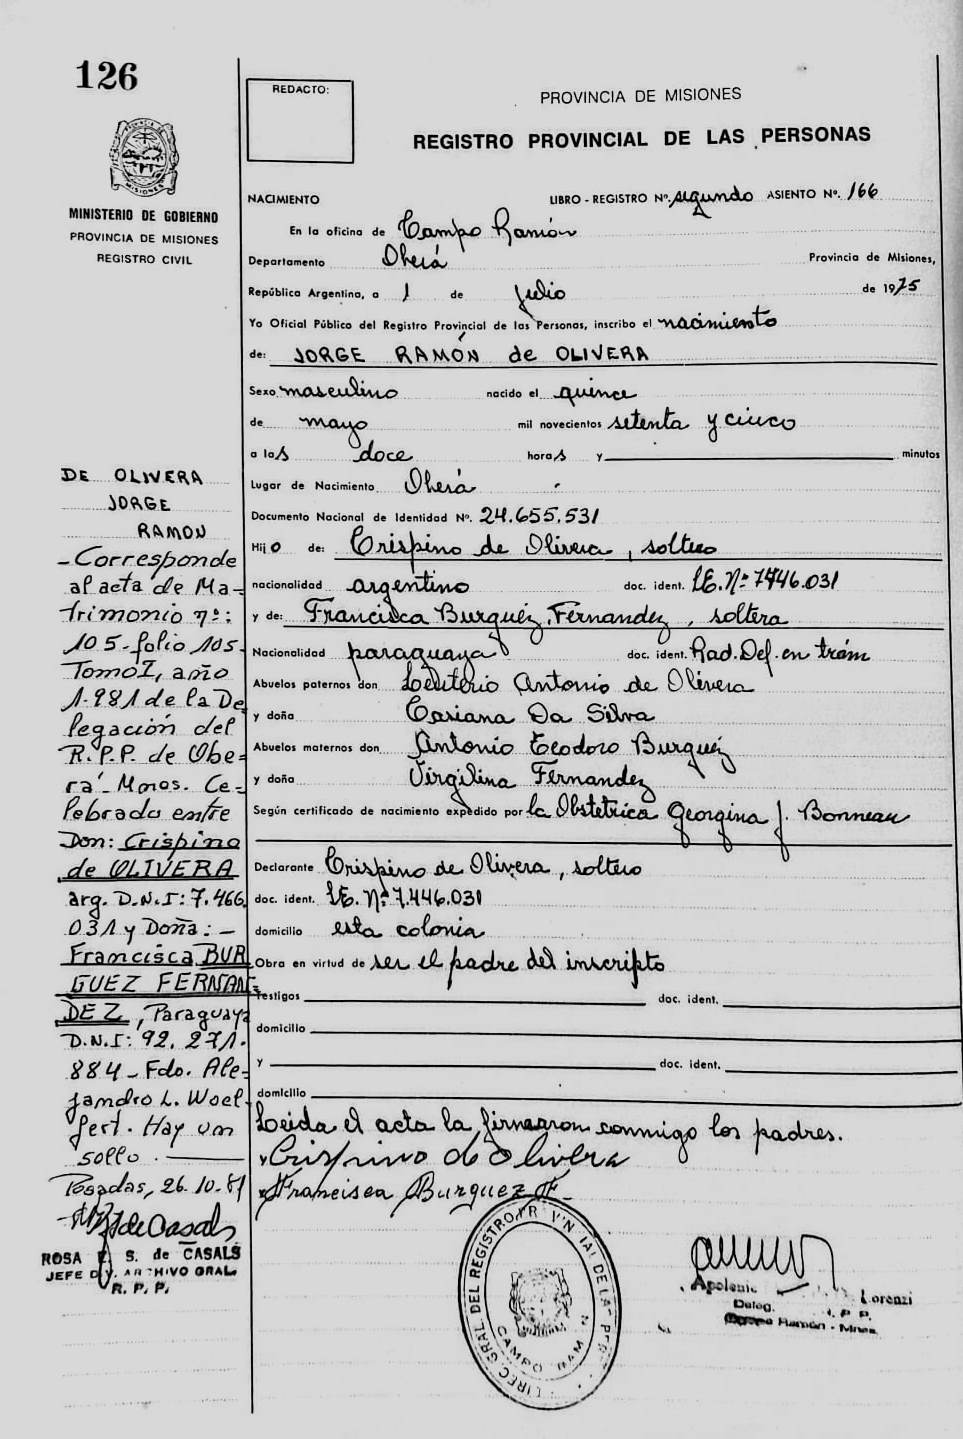 126
REDACTO:
PROVINCIA DE MISIONES
REGISTRO PROVINCIAL DE LAS PERSONAS
MINISTERIO DE GOBIERNO
PROVINCIA DE MISIONES
REGISTRO CIVIL
NACIMIENTO LIBRO - REGISTRO Nº. segundo ASIENTO Nº. 166
En la oficina de Campo Ramón
Departamento Oberá Provincia de Misiones,
República Argentina, a 1 de julio de 1975
Yo Oficial Público del Registro Provincial de las Personas, inscribo el nacimiento
de: JORGE RAMÓN de OLIVERA
Sexo masculino nacido el quince
de mayo mil novecientos setenta y cinco
a las doce horas y minutos
Lugar de Nacimiento Oberá
Documento Nacional de Identidad Nº. 24.655.531
Hijo de: Crispino de Olivera, soltero
nacionalidad argentino doc. ident. LE. Nº 7446.031
y de: Francisca Burguéz, Fernandez, soltera
Nacionalidad paraguaya doc. ident. Rad. Def. en trám
Abuelos paternos don Leuterio Antonio de Olivera
y doña Cariana Da Silva
Abuelos maternos don Antonio Teodoro Burguéz
y doña Virgilina Fernandez
Según certificado de nacimiento expedido por la Obstetrica Georgina J. Bonneau
Declarante Crispino de Olivera, soltero
doc. ident. LE. Nº 7.446.031
domicilio esta colonia
Obra en virtud de ser el padre del inscripto
Testigos doc. ident.
domicilio
y doc. ident.
domicilio
Leida el acta la firmaron conmigo los padres.
Crispino de Olivera
Francisca Burguez F.
DE OLIVERA
JORGE
RAMON
- Corresponde
al acta de Ma-
trimonio nº:
105-folio 105-
Tomo I, año
1.981 de la De
legación del
R.P.P. de Obe=
rá - Mnes. Ce-
lebrado entre
Don: Crispino
de OLIVERA
arg. D.N.I: 7.466
031 y Doña: -
Francisca BUR
GUEZ FERNAN=
DEZ, Paraguaya
D.N.I: 92.271.
884 - Fdo. Ale-
jandro L. Woel
fert. Hay un
sello.
Posadas, 26.10.81
de Casals
ROSA S. de CASALS
JEFE DIV. ARCHIVO GRAL.
R. P. P.
DIREC GRAL DEL REGISTRO PROVINCIAL DE LAS PERS
CAMPO RAMON
Apolonio Lorenzi
Deleg. R. P. P.
Campo Ramón - Mnes.